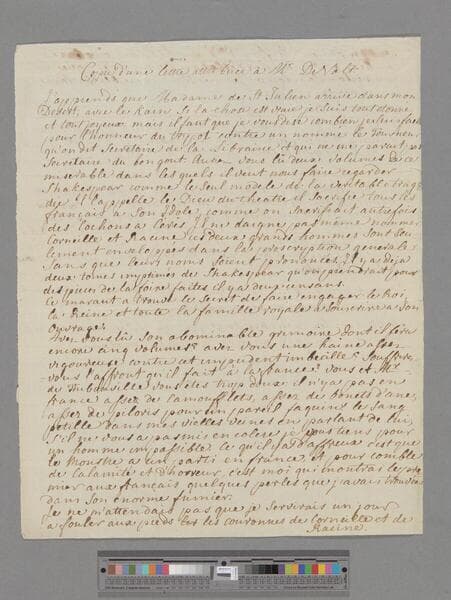 Copie d'une lettre attribuée à Mr De Volt
J'apprends que Madame de St Julien arrive dans mon
Desert, avec le Kain. Si la chose est vraie je suis tout étonné
et tout joyeux, mais il faut que je vous dise combien je suis faché
pour l'honneur du tripot contre un nommé le Tourneur
qu'on dit Secretaire de la Librairie et qui ne me parait pas
Secretaire du bon gout. Aurez vous lû deux volumes de ce
miserable dans les quels il veut nous faire regarder
Shakespear comme le seul modele de la veritable trage
die. Il l'appelle le Dieu du théatre il sacrifie tous les
français a son Idole, comme on sacrifiait autrefois
des Cochons à Cerès. Il ne daigne pas même nommer
Corneille et Racine ces deux grands hommes sont seu
lement enveloppés dans la proscription generale
sans que leurs noms soient prononcés. Il y a deja
deux tomes imprimés de Shakespear qu'on prendrait pour
des pieces de la foire faites il y a deux cens ans.
Ce maraut a trouvé le Secret de faire engager le Roi
la Reine et toute la famille royale a souscrire a son
Ouvrage.
Avez vous lu son abominable grimoire dont il fera
encore cinq volumes? avez vous une haine assez
vigoureuse contre cet impudent imbecille? Souffrirez
vous l'affront qu'il fait à la france? Vous et Mr
de Thibouville vous etes trop doux. il n'y a pas en
france assez de camoufflets, assez de bonets d'ane,
assez de piloris pour un pareil faquin. le sang
petille dans mes vieilles veines en parlant de lui,
s'il ne vous a pas mis en colere je vous tiens pour
un homme impassible. Ce qu'il y a d'affreux c'est que
le Monstre a un parti en france. Et pour comble
de Calamité et d'horreur, c'est moi qui montrai le pre
mier aux français quelques perles que j'avais trouvées
dans son enorme fumier.
Je ne m'attendais pas que je servirais un jour
a fouler aux pieds les couronnes de Corneille et de
Racine.